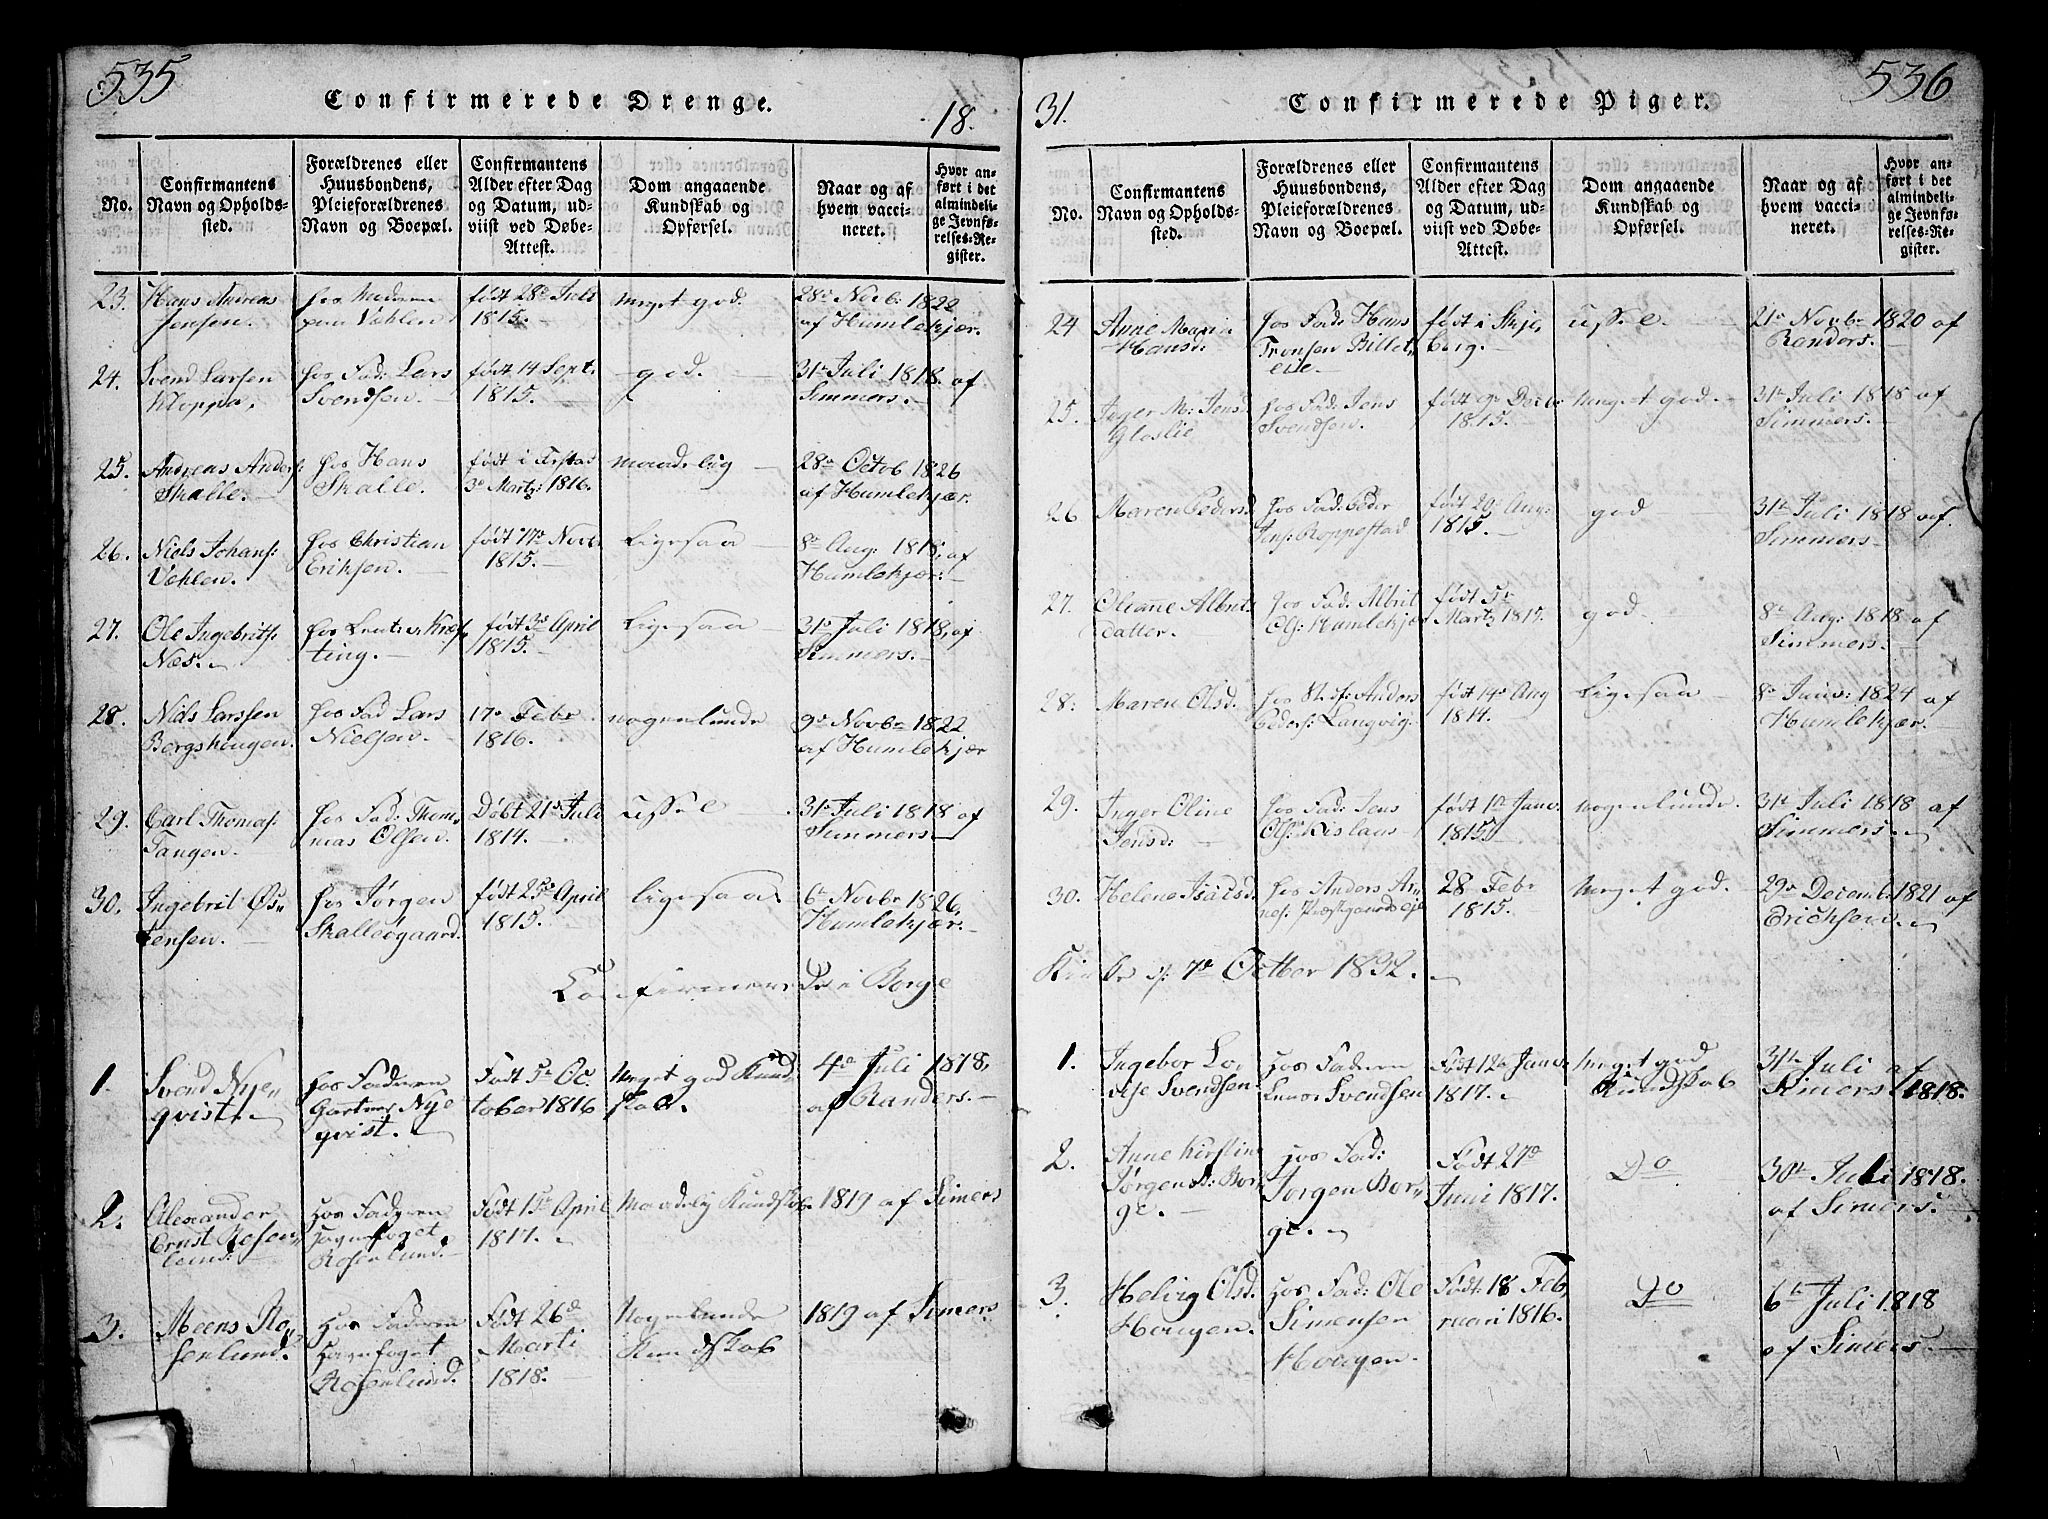 535
Confirmerede Drenge.
18.
No.
Confirmantens
Navn og Opholds-
sted.
Forældrenes eller
Huusbondens,
Pleieforældrenes
Navn og Boepæl.
Confirmantens
Alder efter Dag
og Datum, ud-
viist ved Døbe-
Attest.
Dom angaaende
Kundskab og
Opførsel.
Naar og af
hvem vacci-
neret.
Hvor an-
ført i det
almindeli-
ge Jevnfø-
relses-Re-
gister.
23. Hans Andreas
Jensen.
hos
Vehlen
født 28de Juli
1815.
meget god.
28de Novb. 1822
af Humlekjær.
24. Svend Larsen
Kloppa,
hos Fad: Lars
Svendsen.
født 14 Sept.
1815.
god.
31te Juli 1818. af
Simmers.
25. Andreas Anders:
Skalle.
hos Hans
Skalle.
født i
3de Martz: 1816.
maadelig
28de Octob 1826
af Humlekjær.
26. Niels Johans:
Vehlen.
hos Christian
Eriksen.
født 17de Novr
1815.
Ligesaa
8de Aug: 1818, af
Humlekjær:
27. Ole Ingebrits:
Næs.
hos
ting.
født 3de April
1815.
Ligesaa
31te Juli 1818, af
Simmers.
28. Niels Larssen
Bergshougen.
hos Fad Lars
Nielsen.
17de Febr
1816.
nogenlunde
9de Novbr 1822
af Humlekjær
29. Carl Thomas:
Tangen.
hos Fad: Thom,
mas Olsen.
Døbt 21de Juli
1814.
ussel
31te Juli 1818 af
Simmers
30. Ingebrit Øs-
tensen.
hos Jørgen
Skallegaard.
født 25de April
1815.
ligesaa
6te Novbr 1826,
Humlekjær.
Confirmerede i Borge
1. Svend Nye,
qvist.
hos Faderen
Gartner Nye
qvist.
Født 5te Oc,
tober 1816
Meget god Kund,
skab.
4de Juli 1818,
af Randers.
2. Alexander
Ernst Rosen,
lund.
hos Faderen
foget
Rosenlund.
Født 15de April
1817.
Maadelig Kundskab
1819 af Simers
3. Meens Ro,
senlund.
hos Faderen
foget
Rosenlund.
Født 26de
Marti
1818.
Nogenlunde
Kundskab
1819 af Simers
31.
Confirmerede Piger.
536
No.
Confirmantens
Navn og Opholds-
sted.
Forældrenes eller
Huusbondens,
Pleieforældrenes
Navn og Boepæl.
Confirmantens
Alder efter Dag
og Datum, ud-
viist ved Døbe-
Attest.
Dom angaaende
Kundskab og
Opførsel.
Naar og af
hvem vacci-
neret.
Hvor an-
ført i det
almindeli-
ge Jevnfø-
relses-Re-
gister.
24 Anne Maria
Hansd:
hos Fad: Hans
Tronsen Billet,
eie.
født i Skje,
berg.
ussel
21de Novbr 1820 af
Randers.
25. Inger M: Jensd
Gloslie
hos Fad: Jens
Svendsen.
født 9de Decbr
1815.
meget god.
31te Juli 1818 af
Simmers.
26 Maren Pedersd
hos Fad: Peder
Jens: Roppestad
født 20de Aug:
1815.
god
31te Juli 1818 af.
Simmers
27. Oleane Albrits
datter.
hos Fad: Albrit
Ols: Humlekjær
født 5te
Martz 1815.
god
8de Aug: 1818 af
Simmers.
28. Maren Olsd.
hos Stif: Anders
Peders: Langvig.
født 14de Aug
1814.
Ligesaa
8de Juni: 1824 af
Humlekjær.
29. Inger Oline
Jensd:
hos Fad: Jens
Ols: Kislaas
født 1te Janr
1815
nogenlunde.
31te Juli 1818 af
Simmers.
30. Helene Isaksd.
hos Anders Ar,
nes: Præstgaardseje
28 Febr
1815.
Meget god.
29de Decemb. 1821 af
Erichsen.
Kirke d: 7de Octber 1832.
1. Ingebor Lo,
vise Svendsen
hos Faderen
Svendsen
Født 12te Janr
1817.
Meget god
Kundskab
31te Juli af
Simers 1818.
2. Anne Kirstine
Jørgensd: Bor,
ge.
hos Fad:
Jørgen Bor,
ge.
Født 27de
Juni 1817.
Do
30te Juli 1818.
af Simers.
3. Helvig Olsd.
Hougen.
hos Fad: Ole
Simensen
Hougen.
Født 18 Feb,
ruari 1816.
Do
6te Juli 1818
af Simers.